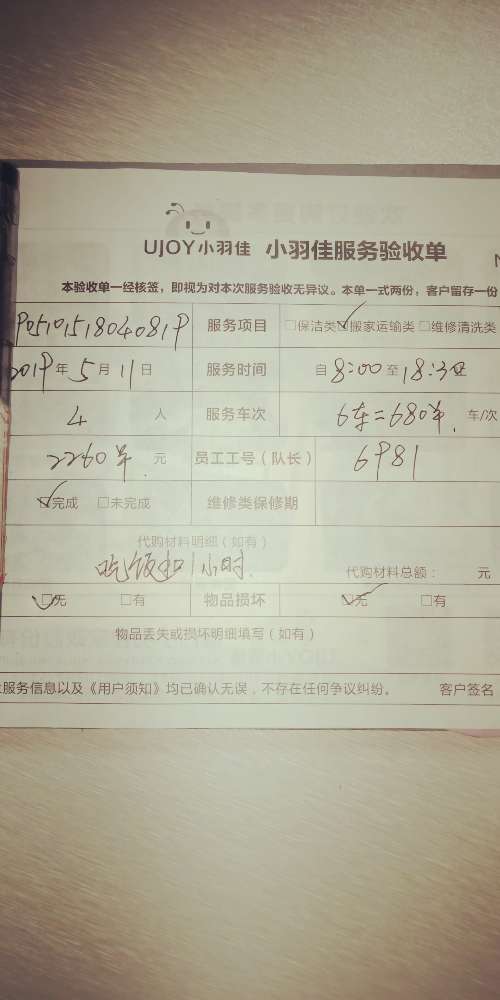 UJOY小羽佳 小羽佳服务验收单
本验收单一经核签，即视为对本次服务验收无异议。本单一式两份，客户留存一份
P05101518040819 服务项目 □保洁类☑搬家运输类□维修清洗类
2019年5月11日 服务时间 自8:00至18:30
4人 服务车次 6车=680单. 车/次
2260单. 元 员工工号（队长） 6981
☑完成 □未完成 维修类保修期
代购材料明细（如有）
吃饭扣1小时. 代购材料总额： 元
☑无 □有 物品损坏 ☑无 □有
物品丢失或损坏明细填写（如有）
服务信息以及《用户须知》均已确认无误，不存在任何争议纠纷。 客户签名